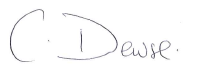 C. Dewse.